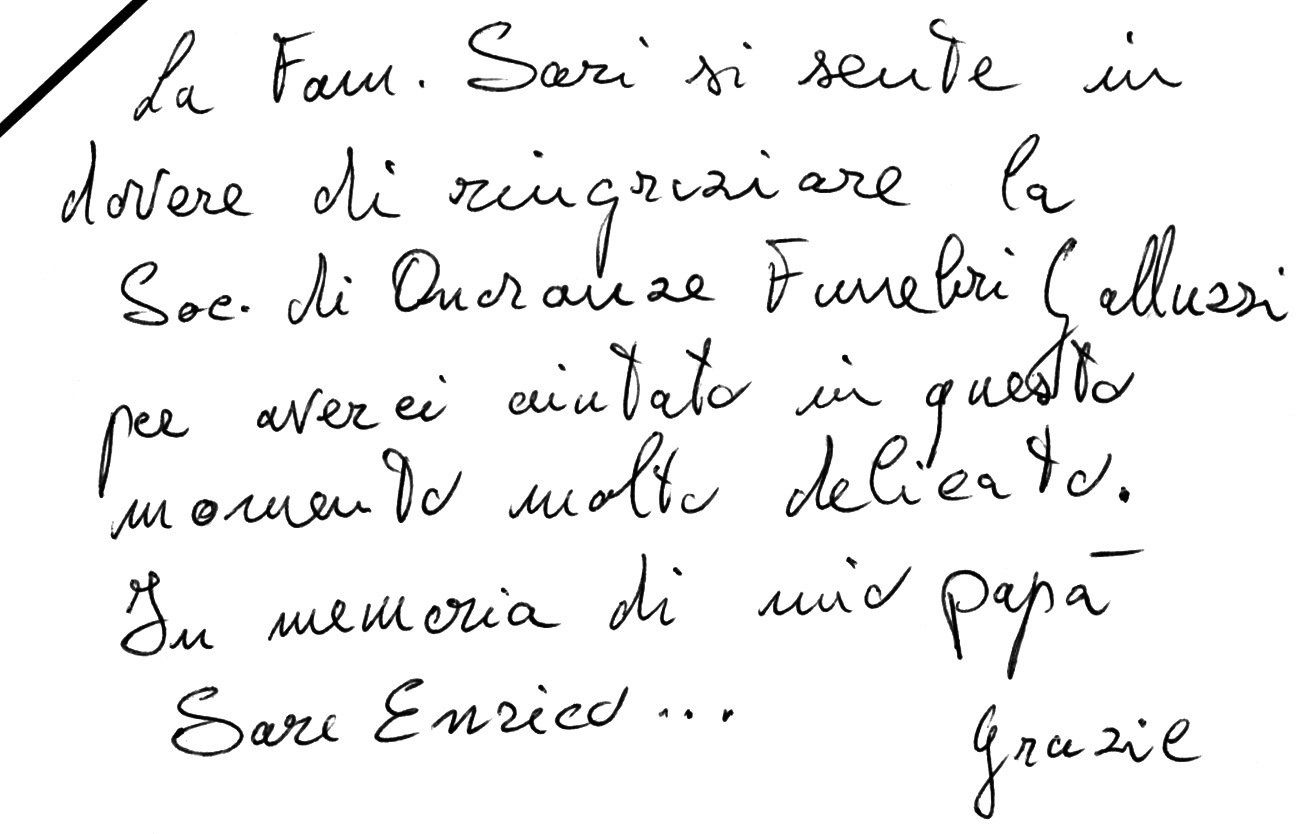 La Fam. Sari si sente in
dovere di ringraziare la
Soc. di Onoranze Funebri Galluzzi
per averci aiutato in questo
momento molto delicato.
In memoria di mio papà
Sari Enrico...
Grazie